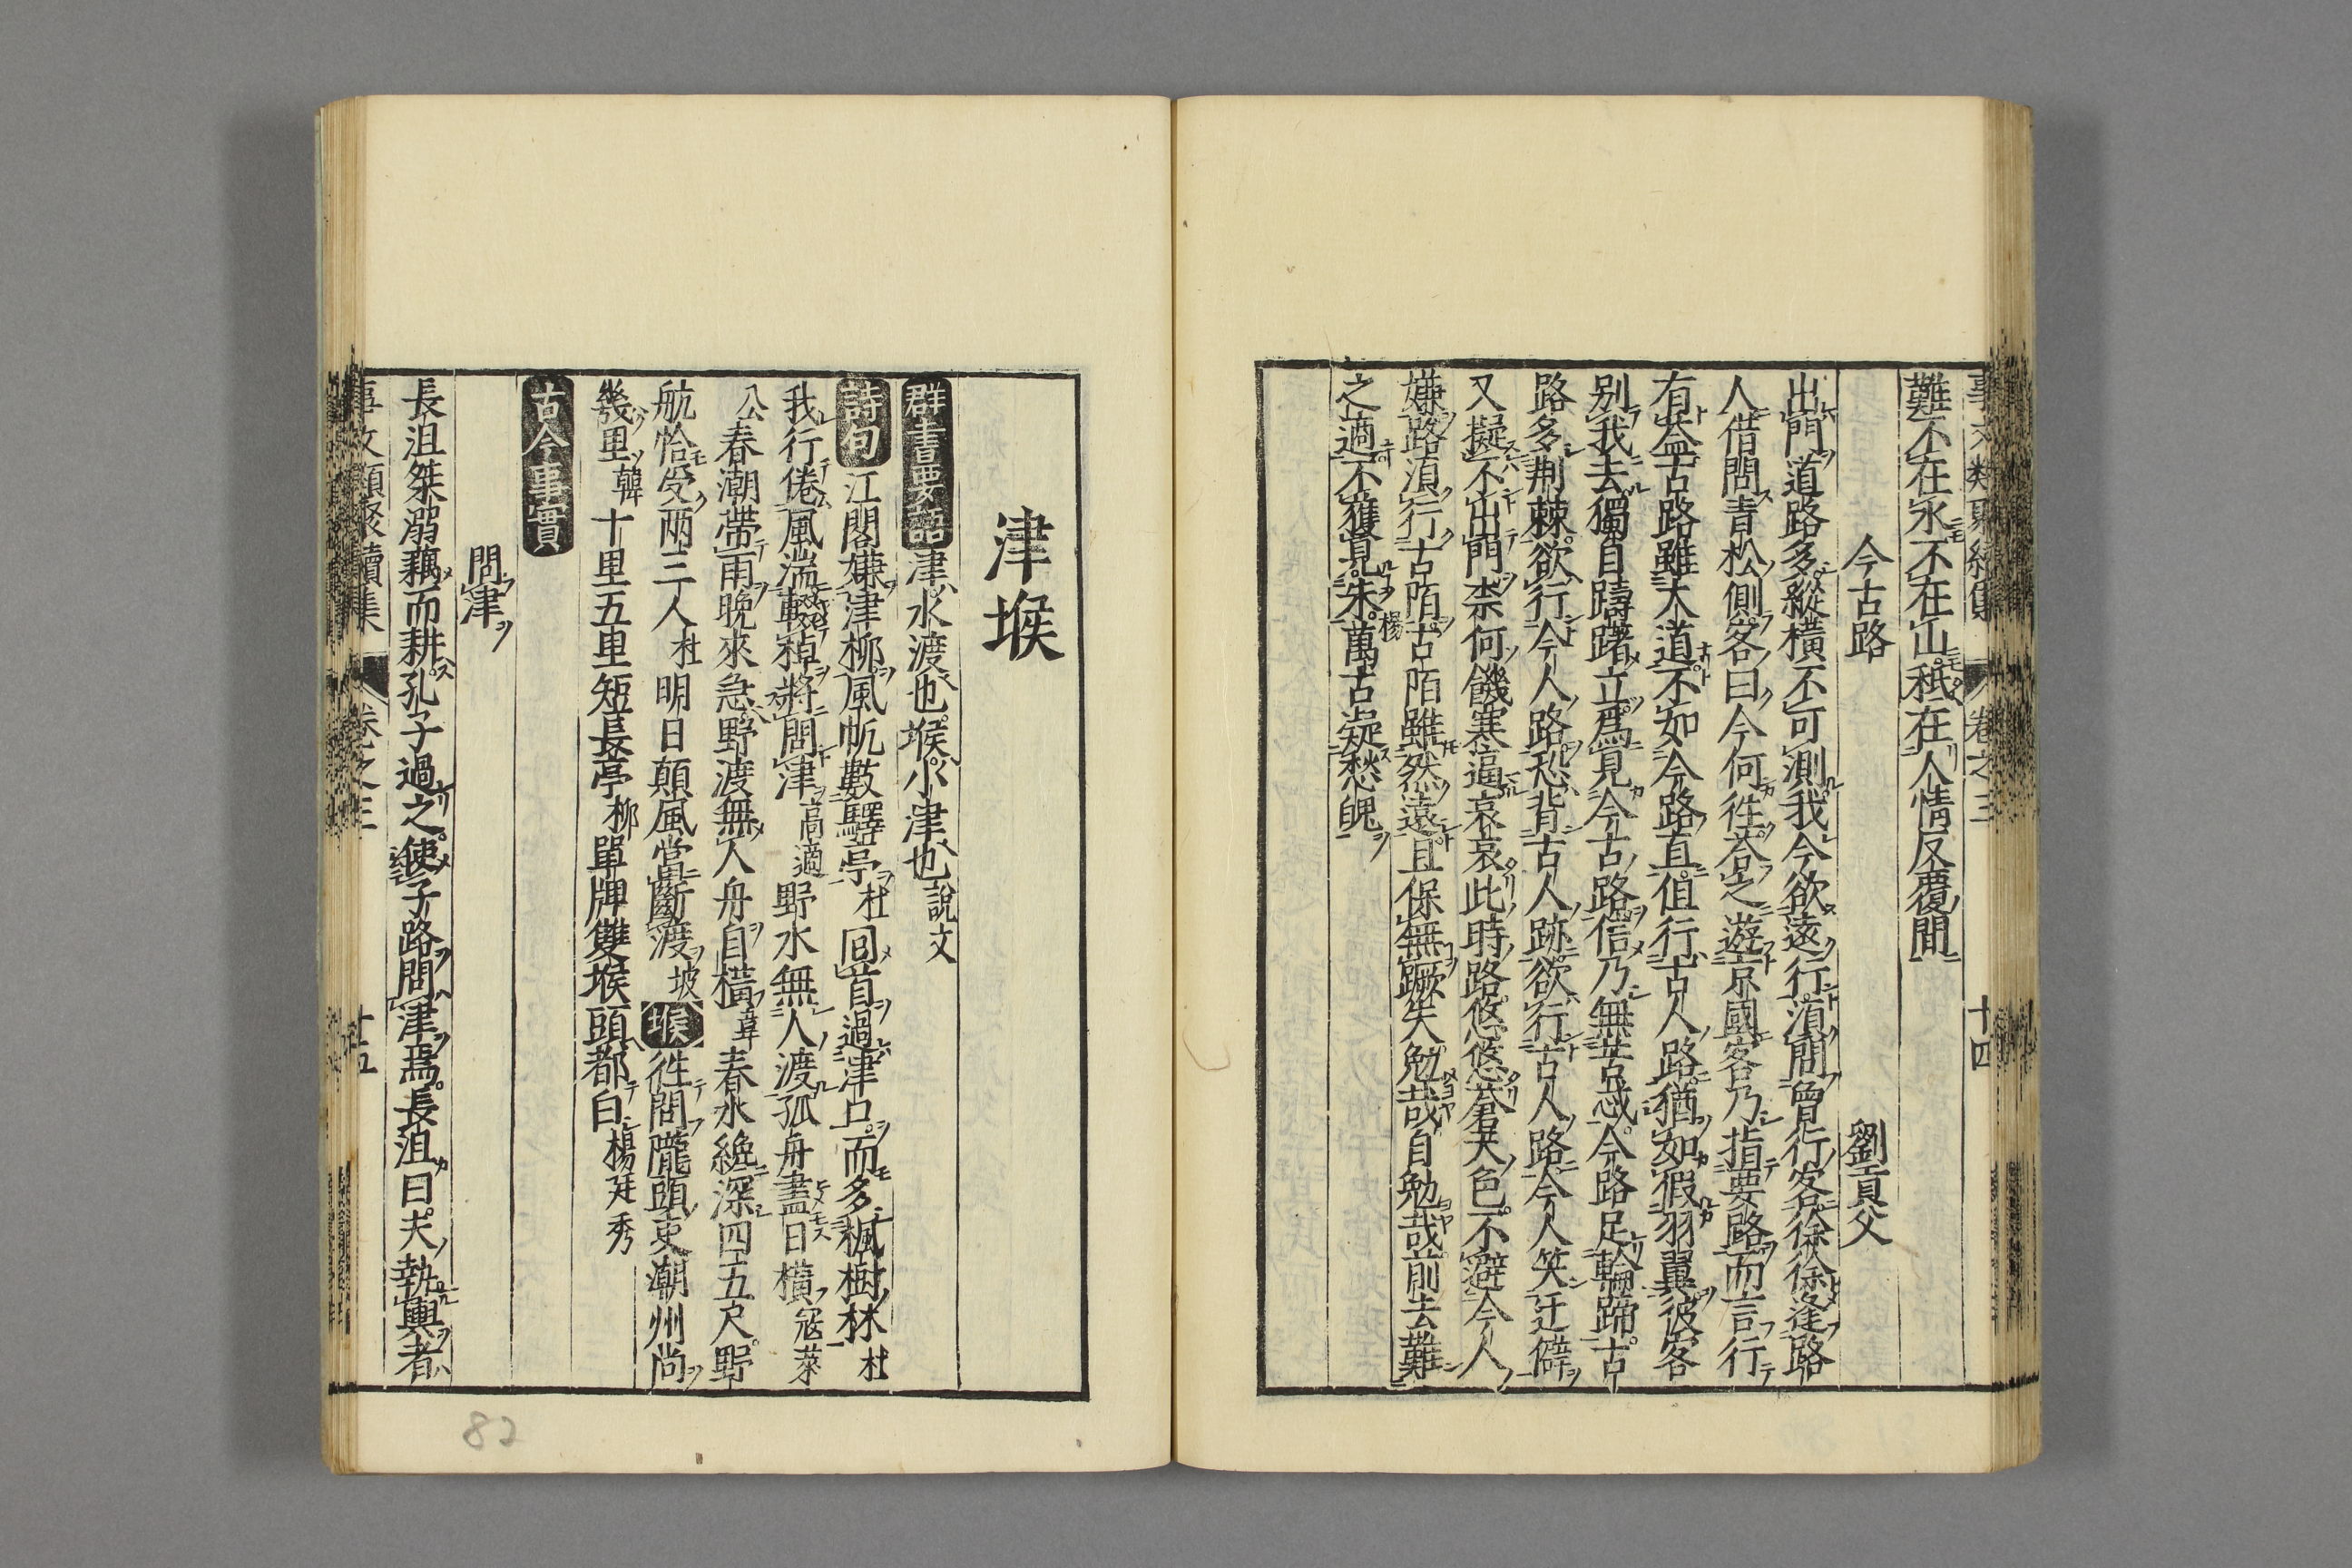 難不在水不在山秖在人情反覆間
今古路　劉貢父
出門道路多縱橫不可測我今欲遠行湏問曾行客徐徐逢路
人借問青松側客曰今何徃荅之遊京國客乃指要路而言行
有益古路雖大道不如今路直但行古人路猶如假羽翼彼客
别我去獨自躊躇立爲見今古路信乃無苦惑今路足輪蹄古
路多荆棘欲行今人路恐背古人跡欲行古人路今人笑迂僻
又擬不出門柰何饑寒逼哀哀此時路悠悠蒼天色不避今人
嫌路湏行古陌古陌雖然遠且保無蹶失勉哉自勉哉前去難
之適不獲見朱楊萬古凝愁魄
津堠
群書要語 津水渡也堠小津也說文
詩句 江閣嫌津柳風帆數驛亭杜 回首過津口而多楓樹林杜
我行倦風湍輟棹將問津高適 野水無人渡孤舟盡日橫寇萊
公 春潮帶雨晚來急野渡無人舟自橫韋 春水纔深四五尺野
航恰受兩三人杜 明日顛風當斷渡坡 堠 徃問隴頭吏潮州尚
幾里韓 十里五里短長亭柳 單牌雙堠頭都白楊廷秀
古今事實
問津
長沮桀溺藕而耕孔子過之使子路問津焉長沮曰夫執輿者
事文類聚續集　卷之三　十五